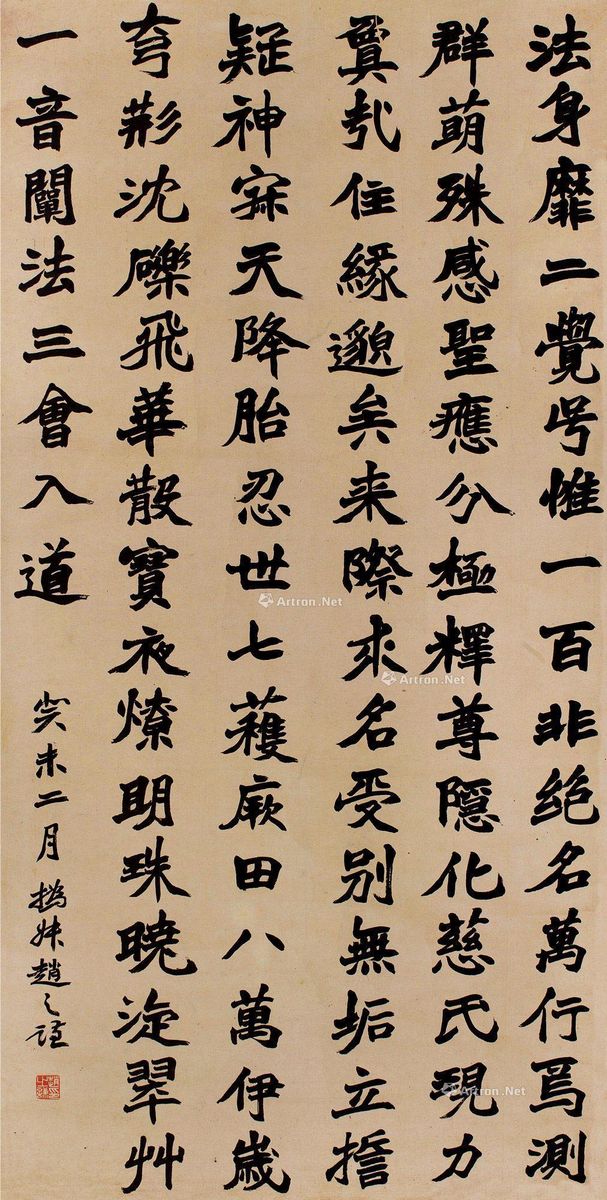 法身靡二覺号惟一百非絶名萬行焉測
群萌殊感聖應分極釋尊隱化慈氏現力
住緣邈矣来際求名受别無垢立擔
疑神天降胎忍世七穫厥田八萬伊歲
沈礫飛華散寶夜燎明珠曉淀翠艸
一音闡法三會入道
癸未二月 撝叔趙之謙
Artron.Net
Artron.Net
Artron.Net